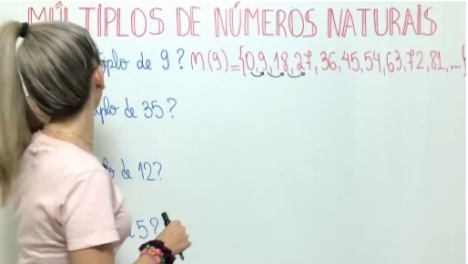 MÚLTIPLOS DE NÚMEROS NATURAIS
de 9? M(9)={0,9,18,27,36,45,54,63,72,81,...}
de 35?
de 12?
5?